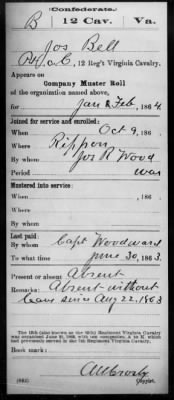 Confederate.
B 12 Cav. Va.
Jos Bell
Pvt, Co. C, 12 Reg't Virginia Cavalry.
Appears on
Company Muster Roll
of the organization named above,
for Jan & Feb, 1864.
Joined for service and enrolled:
When Oct 9, 186 .
Where Rippon
By whom Jos R Wood
Period war
Mustered into service:
When , 186 .
Where
By whom
Last paid:
By whom Capt Woodward
To what time June 30, 1863.
Present or absent Absent
Remarks: Absent without
leave since Aug 22, 1863
The 12th (also known as the 10th) Regiment Virginia Cavalry
was organized June 21, 1862, with ten companies, A to K, which
had previously served in the 7th Regiment Virginia Cavalry.
Book mark:
(642)
Copyist.